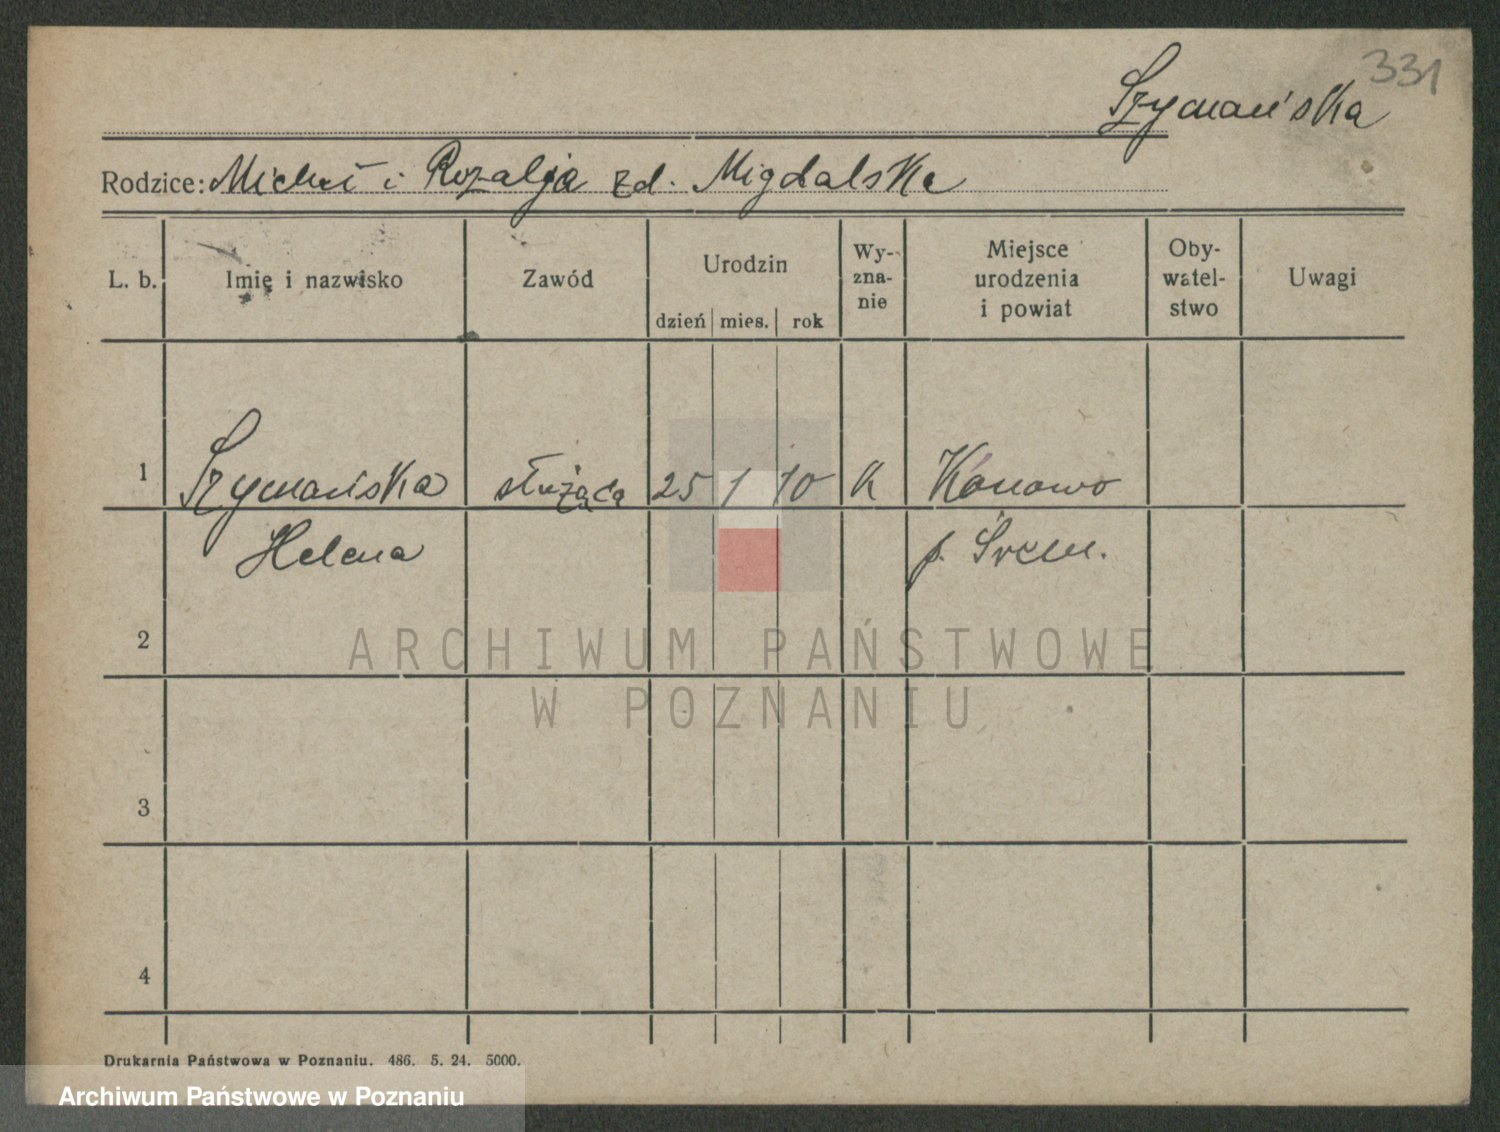 331
Szymańska
Rodzice: Michał i Rozalja zd. Migdalska
L. b. Imię i nazwisko Zawód Urodzin dzień mies. rok Wy-zna-nie Miejsce urodzenia i powiat Oby-watel-stwo Uwagi
1 Szymańska służąca 25 1 10 k Konowo
Helena p. Śrem.
2
ARCHIWUM PAŃSTWOWE
W POZNANIU
3
4
Drukarnia Państwowa w Poznaniu. 486. 5. 24. 5000.
Archiwum Państwowe w Poznaniu